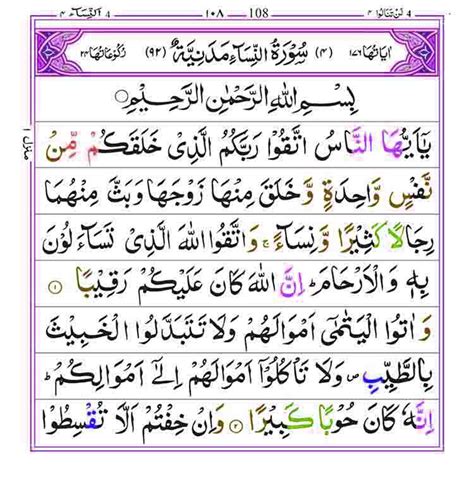 النِّسَآء ٤ ١٠٨ 108 لَنْ تَنَالُوا ٤
اٰيَاتُهَا ١٧٦ (٤) سُوْرَةُ النِّسَآءِ مَدَنِيَّةٌ (٩٢) رُكُوْعَاتُهَا ٢٤
بِسْمِ اللّٰهِ الرَّحْمٰنِ الرَّحِيْمِ
يٰۤاَيُّهَا النَّاسُ اتَّقُوْا رَبَّكُمُ الَّذِىْ خَلَقَكُمْ مِّنْ
نَّفْسٍ وَّاحِدَةٍ وَّخَلَقَ مِنْهَا زَوْجَهَا وَبَثَّ مِنْهُمَا
رِجَالًا كَثِيْرًا وَّنِسَآءً ۚ وَاتَّقُوا اللّٰهَ الَّذِىْ تَسَآءَلُوْنَ
بِهٖ وَالْاَرْحَامَ ؕ اِنَّ اللّٰهَ كَانَ عَلَيْكُمْ رَقِيْبًا ١
وَاٰتُوا الْيَتٰمٰٓى اَمْوَالَهُمْ وَلَا تَتَبَدَّلُوا الْخَبِيْثَ
بِالطَّيِّبِ ۪ وَلَا تَاْكُلُوْۤا اَمْوَالَهُمْ اِلٰٓى اَمْوَالِكُمْ ؕ
اِنَّهٗ كَانَ حُوْبًا كَبِيْرًا ٢ وَاِنْ خِفْتُمْ اَلَّا تُقْسِطُوْا
منزل ١